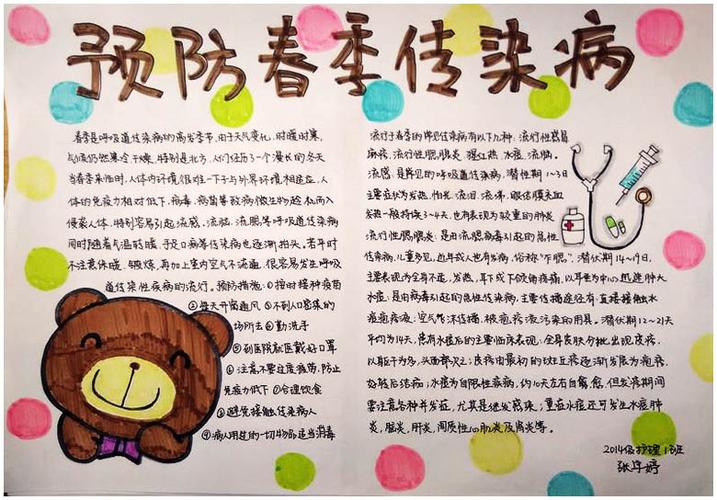 预防春季传染病
春季是呼吸道传染病的高发季节,由于天气变化,时暖时寒,
气候仍然寒冷干燥,特别是北方,人们经历了一个漫长的冬天
当春季来临时,人体内环境很难一下子与外界环境相适应,人
体的免疫力相对低下,病毒、病菌等致病微生物趁机而入
侵袭人体,特别容易引起流感、流脑、流腮等呼吸道传染病
同时随着气温转暖,手足口病等传染病也逐渐抬头。若平时
不注意休暖、锻炼,再加上室内空气不流通,很容易发生呼吸
道传染性疾病的流行。预防措施:①按时接种疫苗
②每天开窗通风 ③不到人口密集的
场所去 ④勤洗手
⑤到医院就医戴好口罩
⑥注意不要过度疲劳,防止
免疫力低下 ⑦合理饮食
⑧避免接触传染病人
⑨病人用过的一切物品适当消毒
流行于春季的常见传染病有以下几种:流行性感冒
麻疹、流行性腮腺炎、猩红热、水痘、流脑。
流感:是常见的呼吸道传染病,潜伏期1~3日
主要症状为发热、怕光、流泪、流涕、眼结膜充血
发热一般持续3~4天,也有表现为较重的肺炎
流行性腮腺炎:是由流腮病毒引起的急性
传染病,儿童多见,也有成人也有病,俗称"乍腮"。潜伏期14~19日,
主要表现为全身不适,发热,耳下或下颌角疼痛,以耳垂为中心迅速肿大
水痘:是由病毒引起的急性传染病,主要传播途径有:直接接触水
痘疱疹液;空气飞沫传播、被疱疹液污染的用具。潜伏期12~21天
平均为14天,患有水痘后的主要临床表现:全身皮肤分批出现皮疹,
以躯干为多,头面部次之;皮疹由最初的斑丘疹逐渐发展为疱疹,
好转后结痂;水痘为自限性疾病,约10天左右自愈,但发病期间
要注意各种并发症,尤其是继发感染;重症水痘还可发生水痘肺
炎、脑炎、肝炎、间质性心肌炎及肾炎等。
2014级护理1班